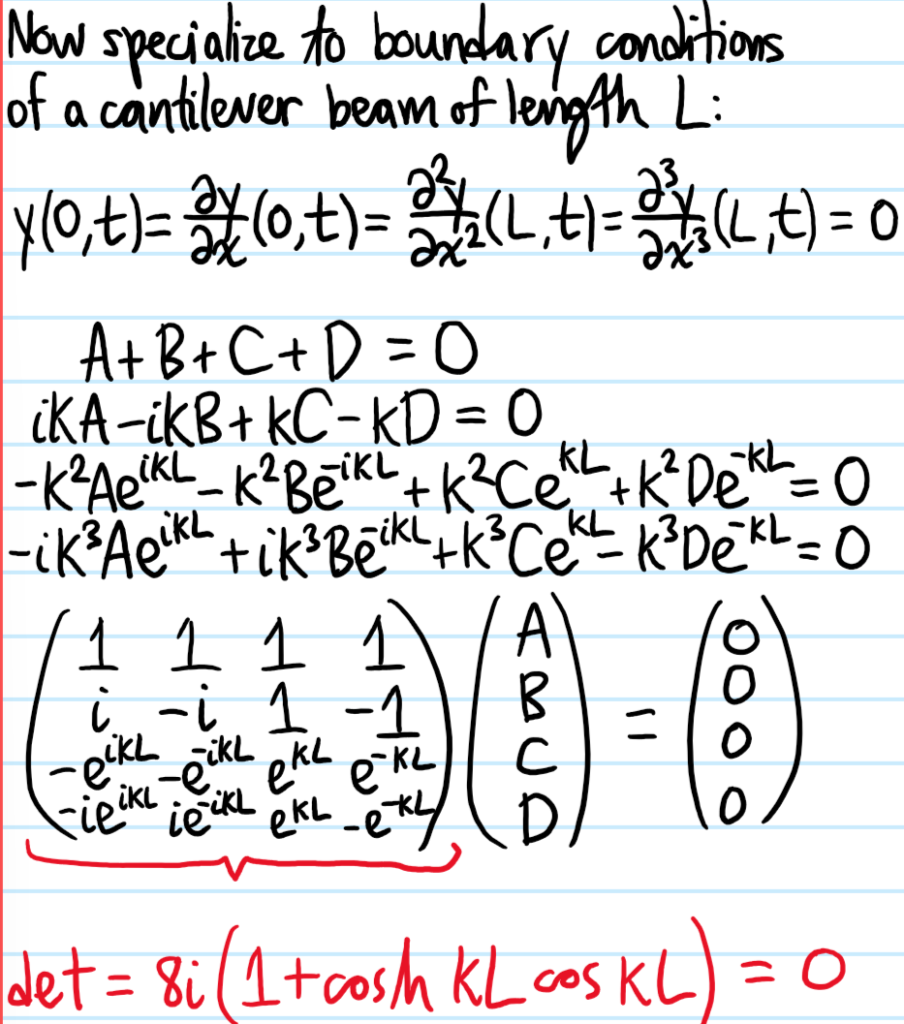 Now specialize to boundary conditions
of a cantilever beam of length L:
y(0,t)= ∂y/∂x (0,t)= ∂²y/∂x² (L,t)= ∂³y/∂x³ (L,t) = 0
A+B+C+D = 0
ikA-ikB+kC-kD = 0
-k²Ae^{ikL} - k²Be^{-ikL} + k²Ce^{kL} + k²De^{-kL} = 0
-ik³Ae^{ikL} + ik³Be^{-ikL} + k³Ce^{kL} - k³De^{-kL} = 0
( 1 1 1 1 ) ( A ) ( 0 )
( i -i 1 -1 ) ( B ) ( 0 )
( -e^{ikL} -e^{-ikL} e^{kL} e^{-kL} ) ( C ) = ( 0 )
( -ie^{ikL} ie^{-ikL} e^{kL} -e^{-kL} ) ( D ) ( 0 )
det = 8i(1+cosh kL cos kL) = 0